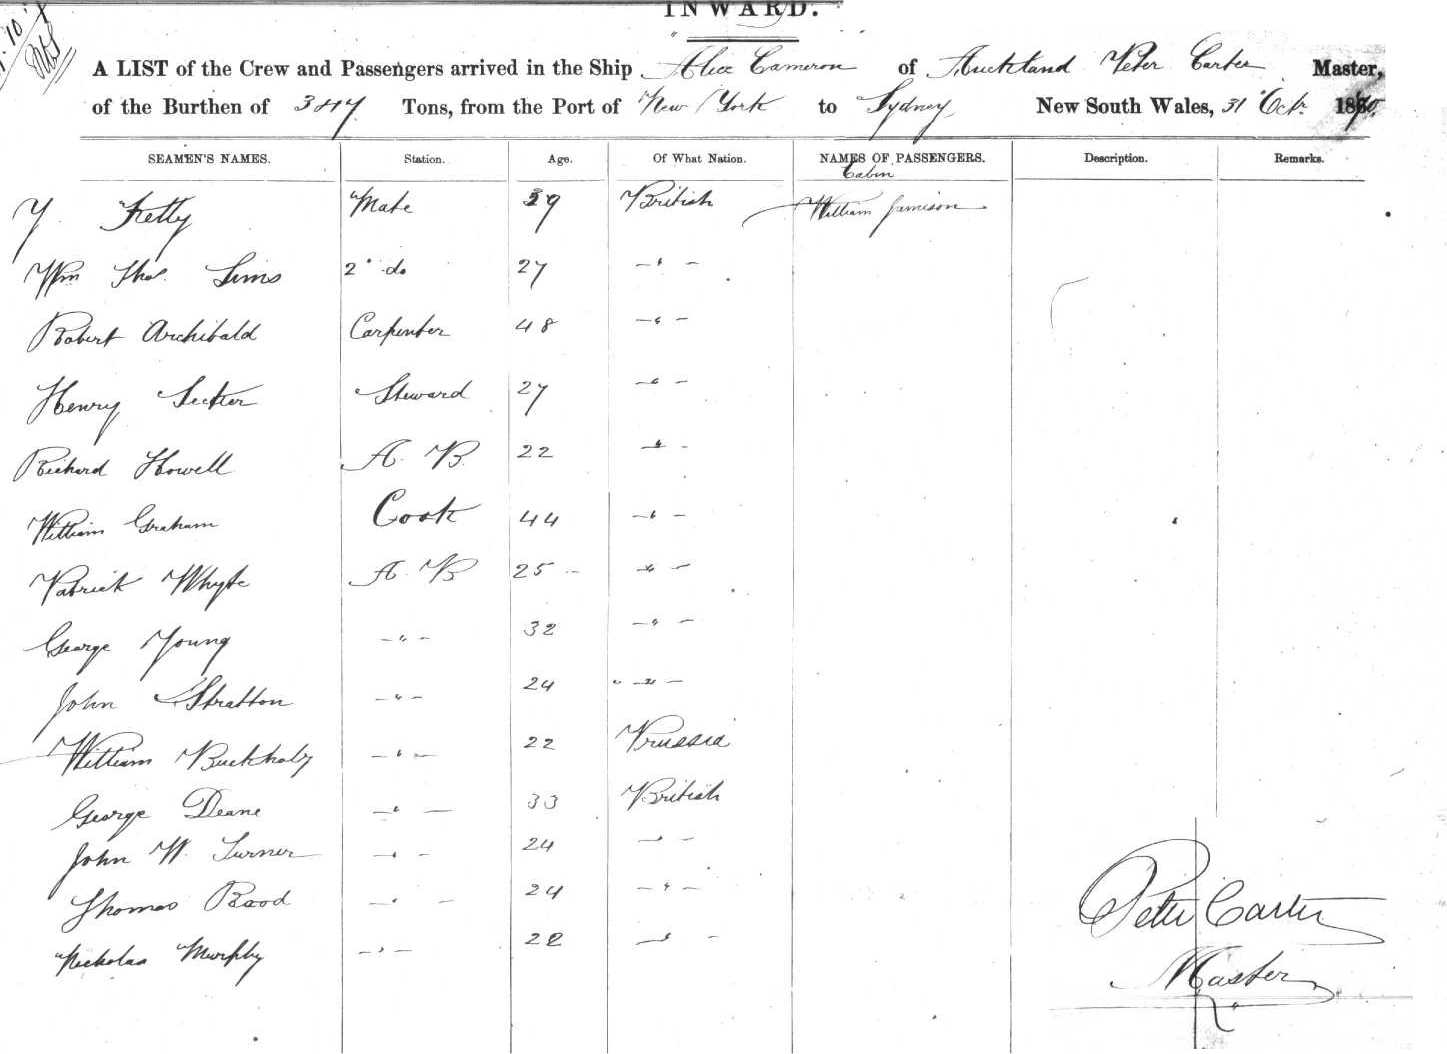 INWARD.
A LIST of the Crew and Passengers arrived in the Ship Alice Cameron of Auckland Peter Carter Master,
of the Burthen of Tons, from the Port of New York to Sydney New South Wales, 31 Octr. 1870
SEAMEN'S NAMES. Station. Age. Of What Nation. NAMES OF PASSENGERS. Description. Remarks.
Cabin
Y. Mate 39 British William Jamison
Wm Thos. Sims 2d do 27 - " -
Robert Archibald Carpenter 48 - " -
Henry Steward 27 - " -
Richard Howell A. B. 22 - " -
William Graham Cook 44 - " -
Patrick Whyte A. B 25 - - " -
George Young - " - 32 - " -
John Stratton - " - 24 " - " -
William - " - 22 Prussia
George Deane - " - 33 British
John W. Turner - " - 24 - " -
Thomas Rood - " - 24 - " -
Nicholas Murphy - " - 22 - " -
Peter Carter
Master